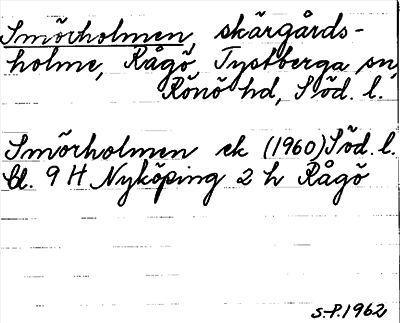 Smörholmen, skärgårds-
holme, Rågö, Tystberga sn,
Rönö hd, Söd. l.
Smörholmen ek (1960) Söd. l.
bl. 9 H Nyköping 2 h Rågö
S.-P. 1962